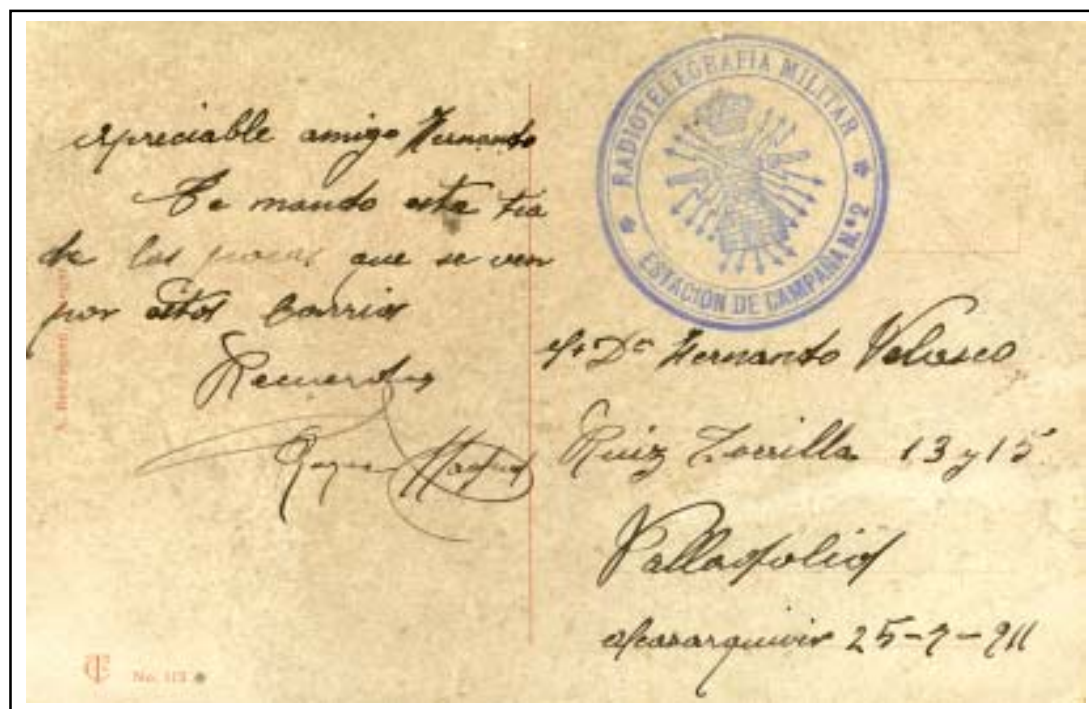 Apreciable amigo Hernando
Te mando esta tía
de las pocas que se ven
por estos barrios
Recuerdos
RADIOTELEGRAFIA MILITAR
ESTACIÓN DE CAMPAÑA N.º 2
Sr Dn Hernando Velasco
Ruiz Zorrilla 13 y 15
Valladolid
Alcazarquivir 25-7-911
No. 113